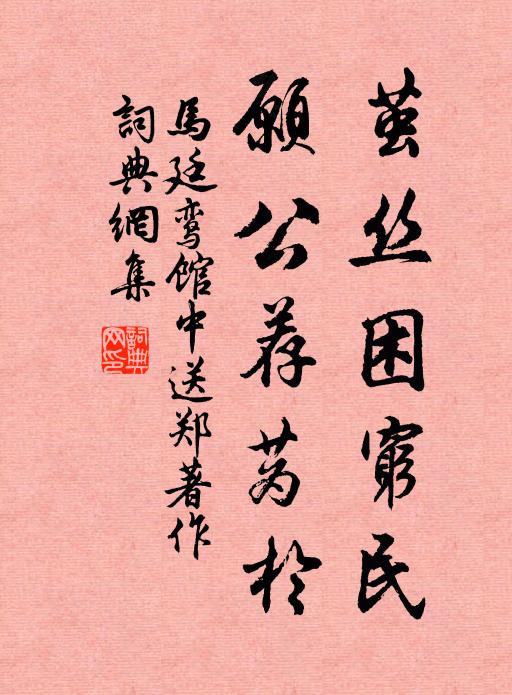 茧丝困穷民
願公荐芴於
馬廷鸾馆中送郑著作
詞典網集
詞典网印